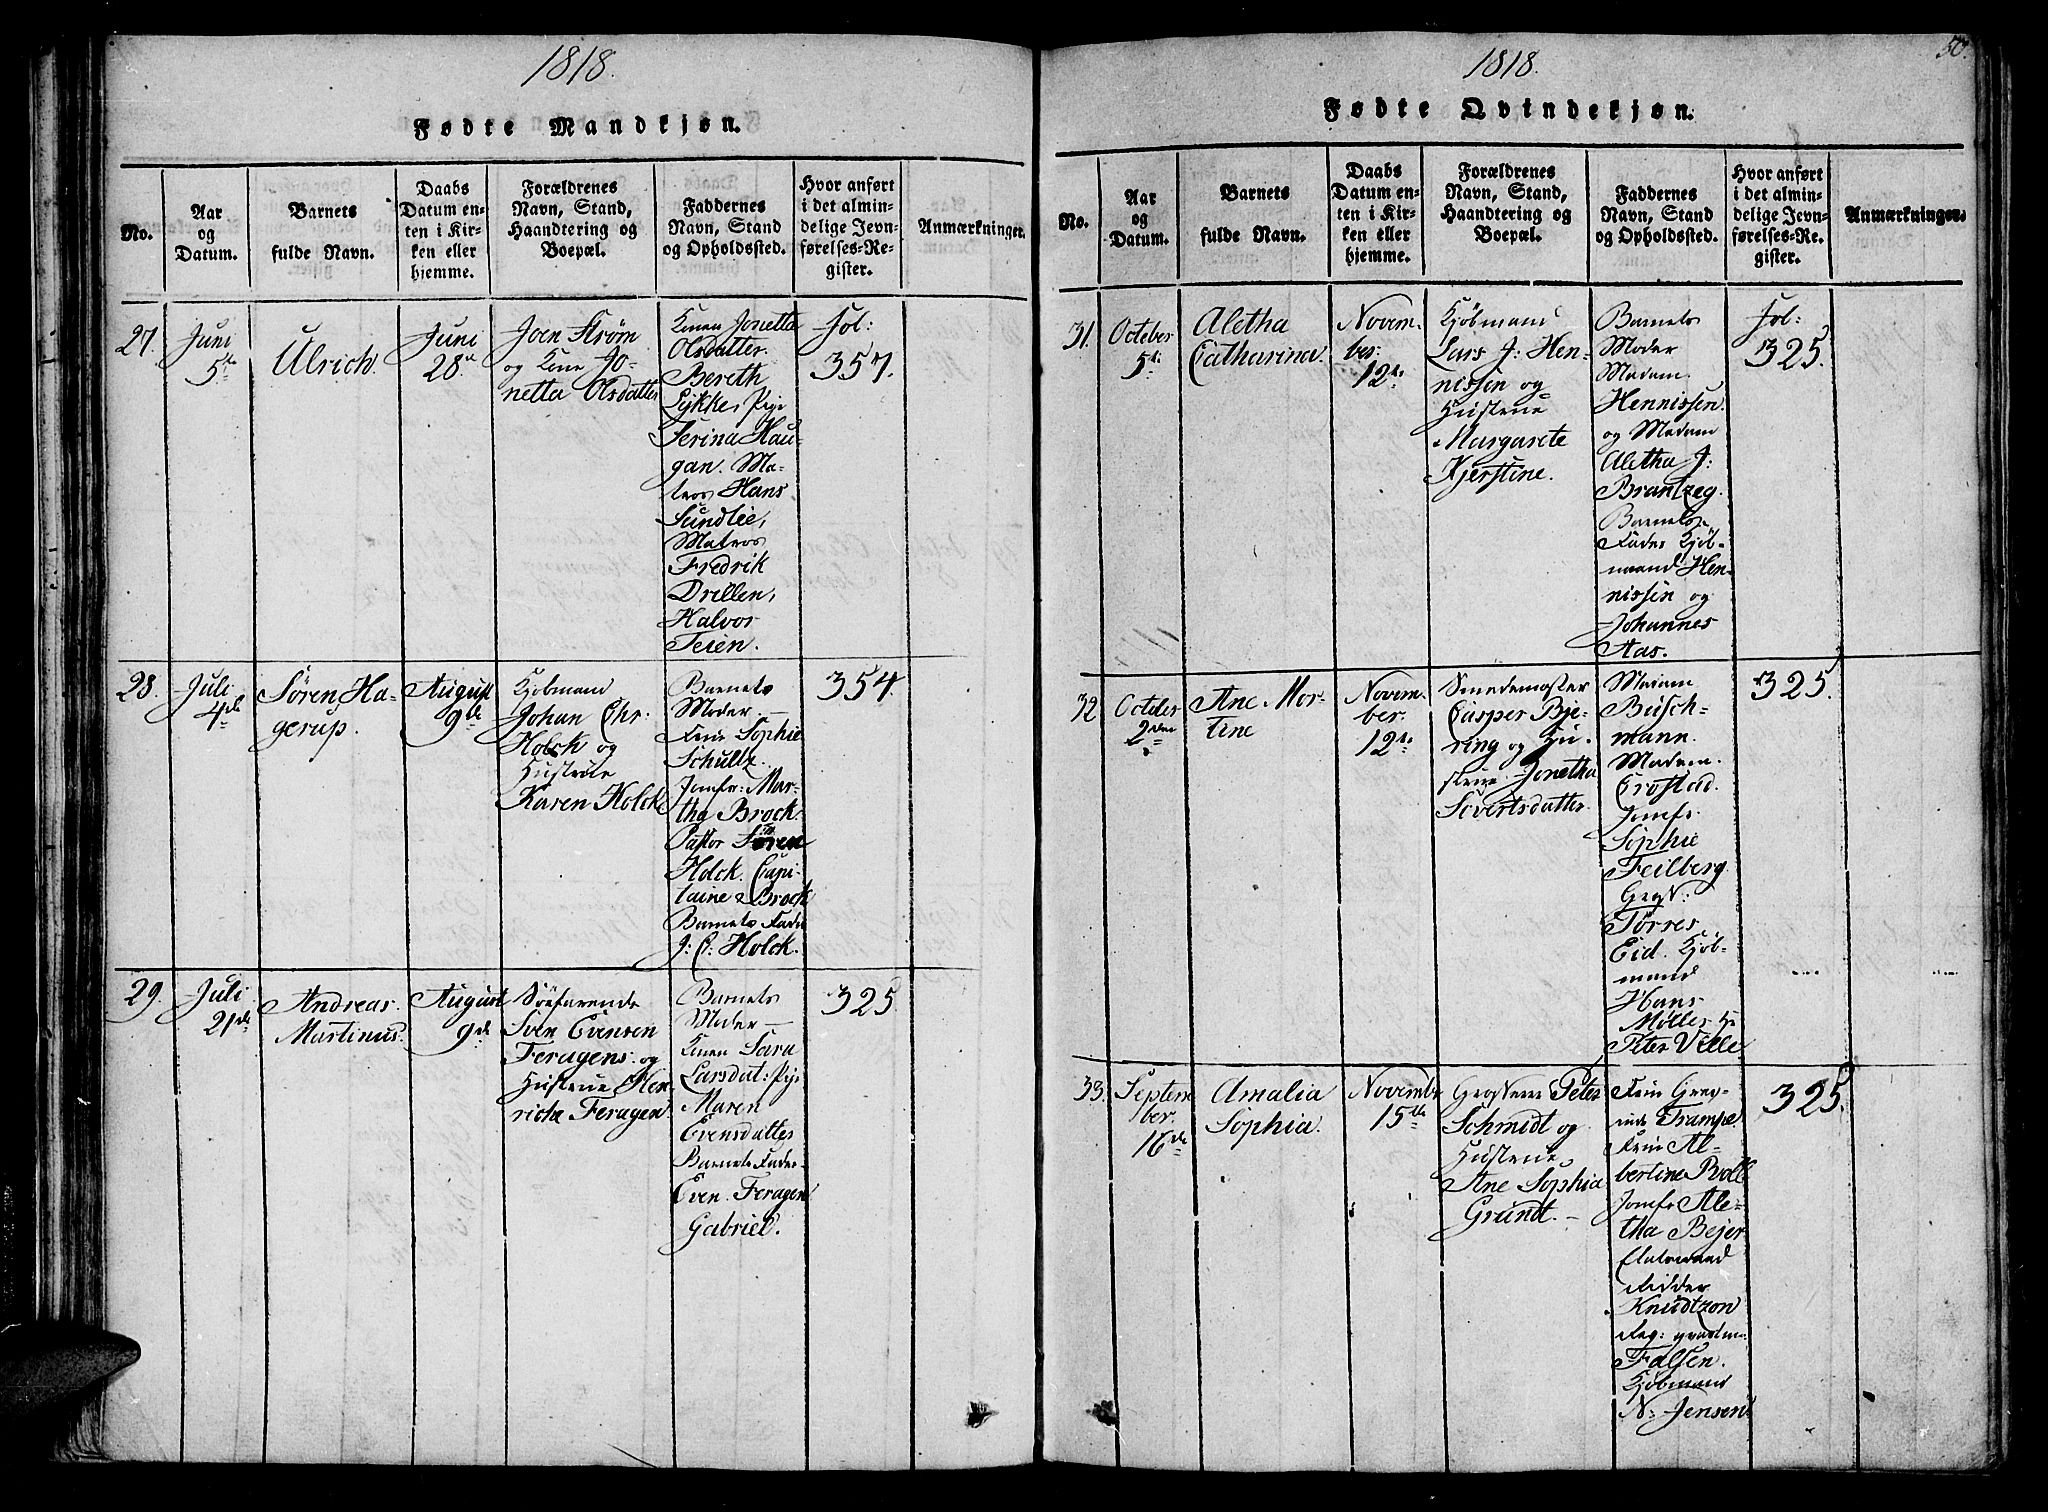 1818.
Fødte Mandkjøn.
No.
Aar
og
Datum.
Barnets
fulde Navn.
Daabs
Datum en-
ten i Kir-
ken eller
hjemme.
Forældrenes
Navn, Stand,
Haandtering og
Boepæl.
Faddernes
Navn, Stand
og Opholdssted.
Hvor anført
i det almin-
delige Jevn-
førelses-Re-
gister.
Anmærkninger.
27.
Juni
5te
Ulrich.
Juni
28de
Joen Strøm
og Kone Jo-
netta Olsdatter
Konen Jonetta
Olsdatter.
Bereth
Lykke, Pige
Serina Hau-
gan. Ma-
tros Hans
Sundlie,
Matros
Fredrik
Drillen,
Halvor
Teien.
Fol:
357.
28.
Juli
4de
Søren Ha-
gerup.
August
9de
Kjøbmand
Johan Chr:
Holck og
Hustrue
Karen Holck
Barnets
Moder —
Frue Sophie
Schultz.
Jomfr: Mar-
tha Brock.
Pastor Søren
Holck. Capi-
taine Brock
Barnets Fader
J: C: Holck.
354
29.
Juli
21de
Andreas
Martinus.
August
9de
Søefarende
Sven Evensen
Feragens og
Hustrue Hen
richa Feragen.
Barnets
Moder —
Konen Sara
Larsdat: Pige
Maren
Evensdatter
Barnets Fader
Even Feragen
Gabriel.
325
1818.
50.
Fødte Qvindekjøn.
No.
Aar
og
Datum.
Barnets
fulde Navn.
Daabs
Datum en-
ten i Kir-
ken eller
hjemme.
Forældrenes
Navn, Stand,
Haandtering og
Boepæl.
Faddernes
Navn, Stand
og Opholdssted.
Hvor anført
i det almin-
delige Jevn-
førelses-Re-
gister.
Anmærkninger.
31.
October
5te
Aletha
Catharina.
Novem-
ber.
12te
Kjøbmand
Lars J: Hen-
nissen og
Hustrue
Margarete
Kjerstine.
Barnets
Moder
Madam
Hennissen.
og Madam
Aletha J:
Brantzeg.
Barnets
Fader Kjøb-
mand Hen-
nissen og
Johannes
Aas.
Fol:
325.
32
October
2den
Ane Mor-
tine
Novem-
ber.
12te
Smedemester
Casper Bje-
ring og Hu-
strue Jonetha
Sivertsdatter.
Madam
Busch-
mann.
Madam
Crostad.
Jomfr.
Sophie
Feilberg.
Torres
Eid. Kjøb-
mand
Hans
Møller
Peter Velle.
325.
33.
Septem
ber.
16de
Amalia
Sophia.
Novembr
15de
Peter
Schmidt og
Hustrue
Ane Sophia
Grundt. —
Frue Grev-
inde Trampe
Frue Al-
bertine Roll
Jomfr Ale-
tha Bejer
Etatsraad
Ridder
Knudtzon
Falsen.
Kjøbmand
N: Jensen
325.